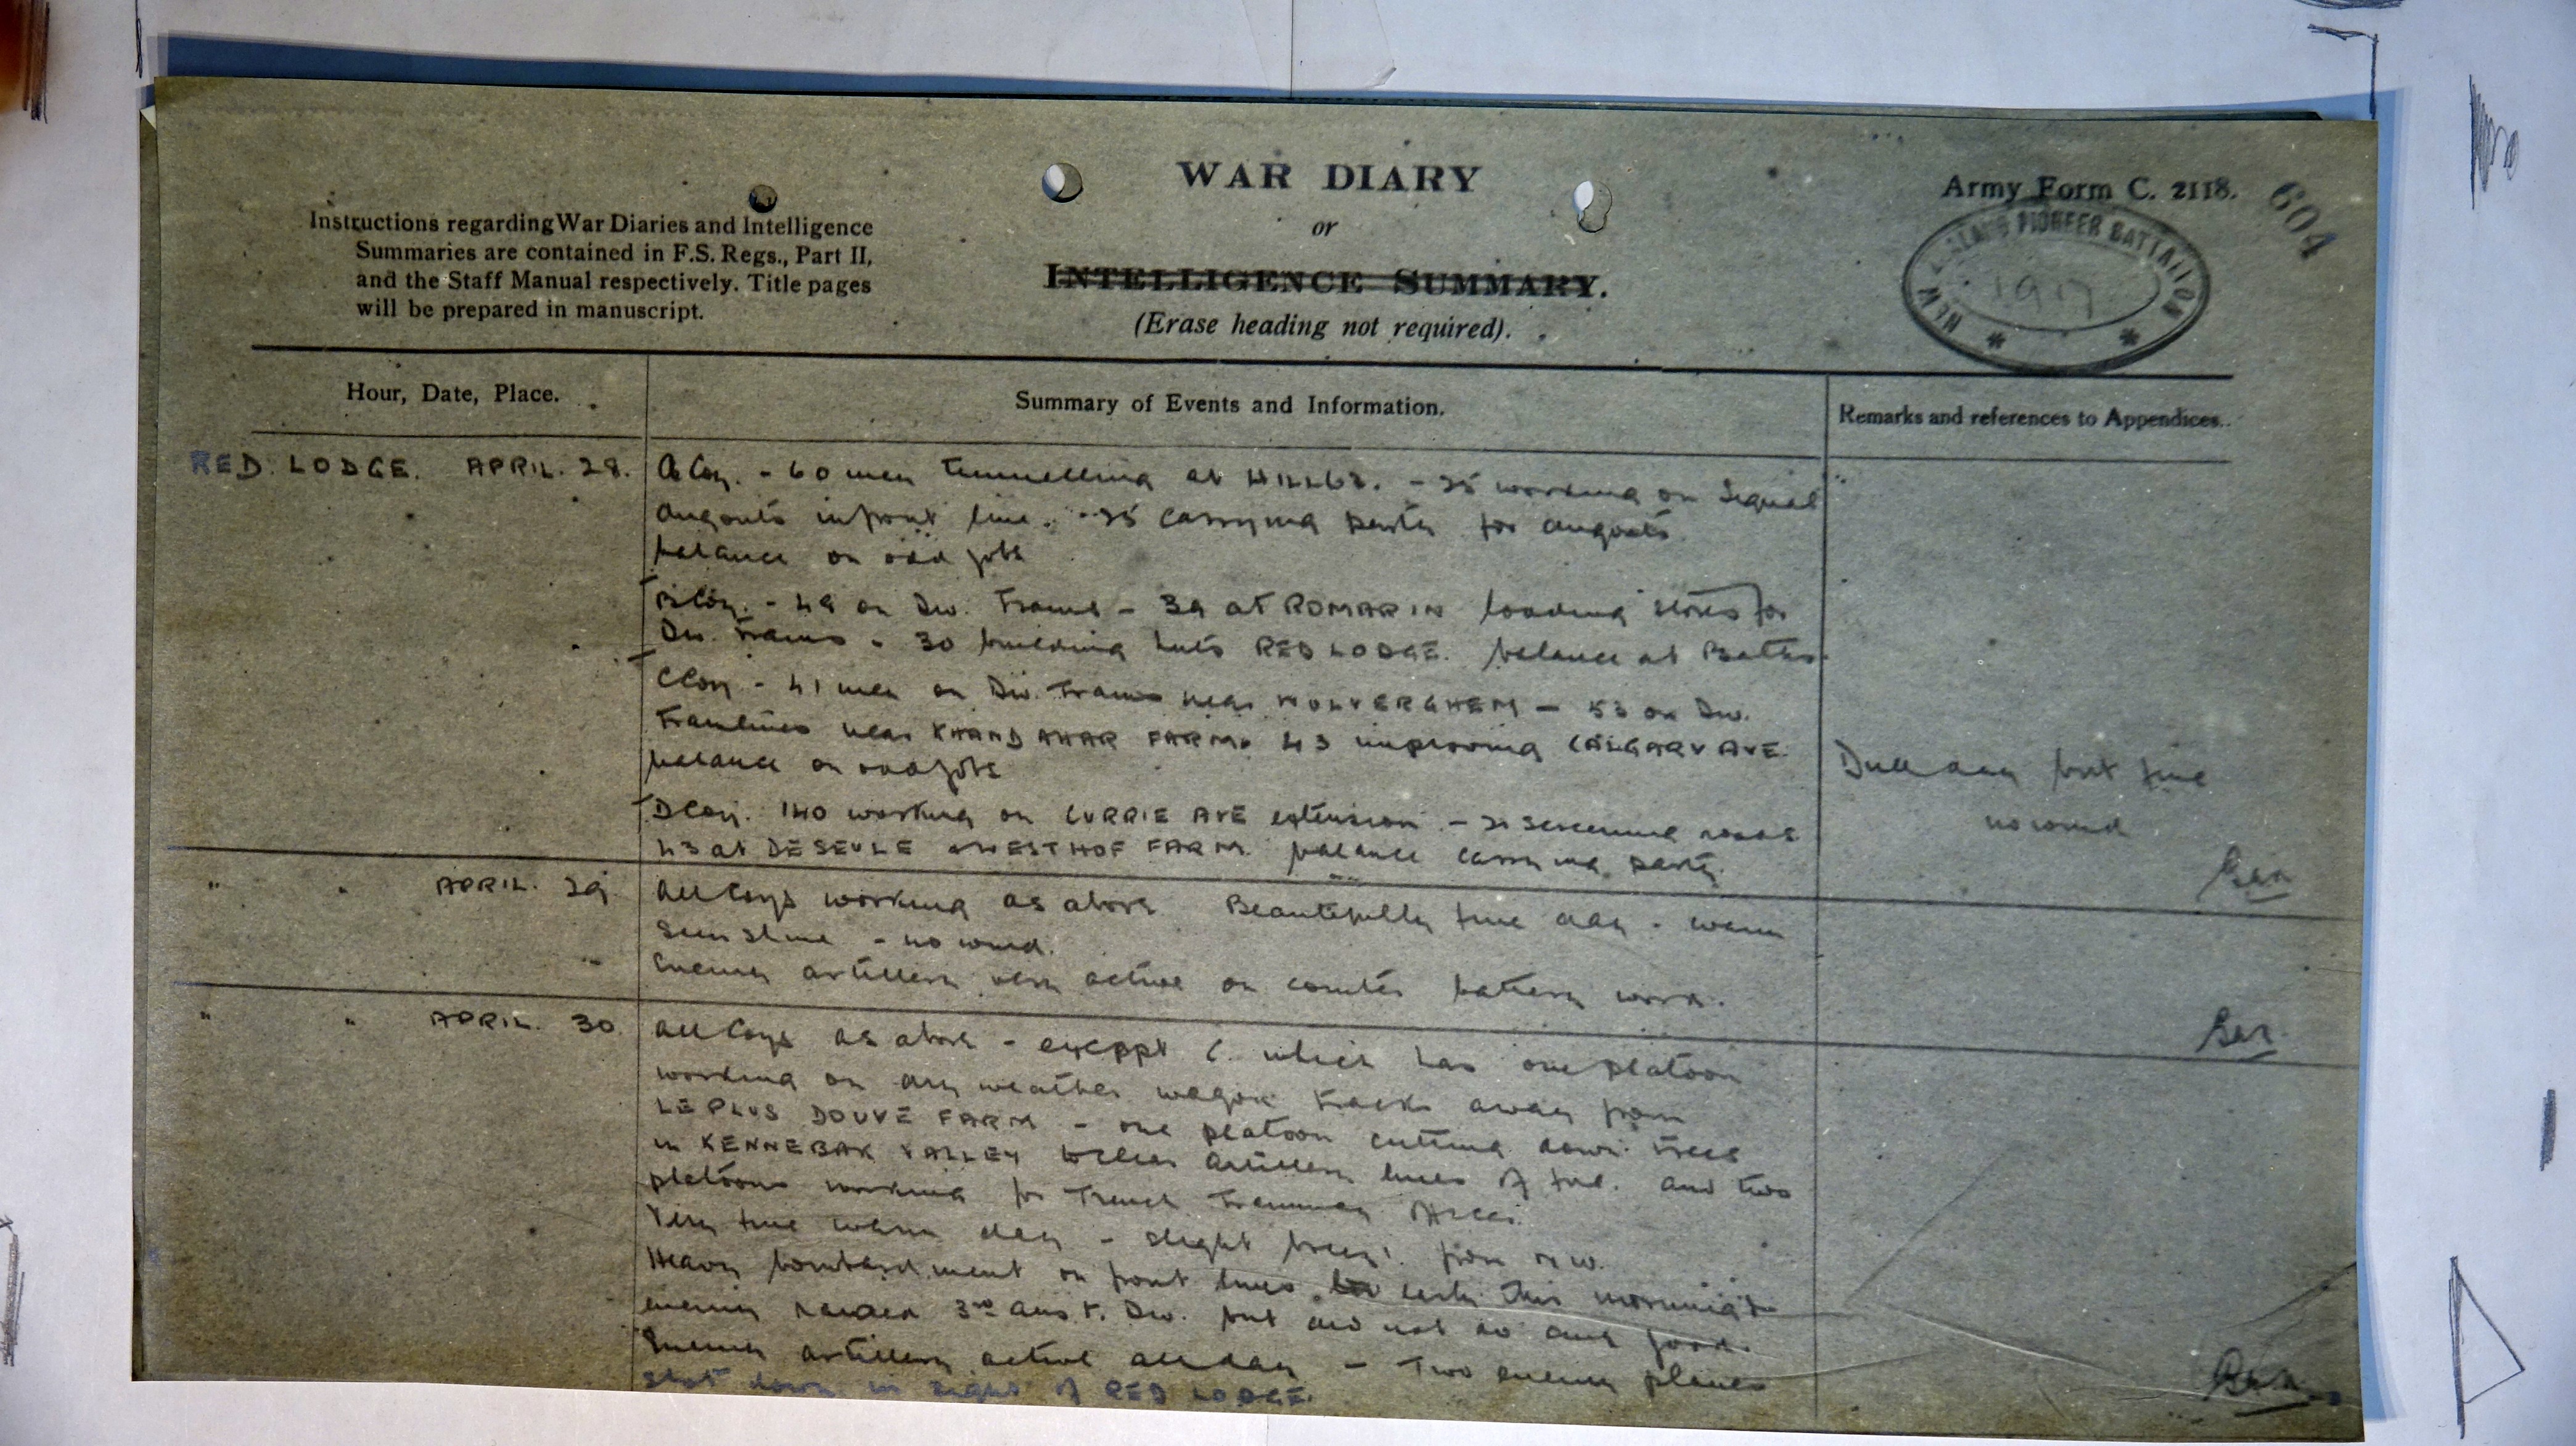 WAR DIARY
or
INTELLIGENCE SUMMARY.
(Erase heading not required).
Instructions regarding War Diaries and Intelligence
Summaries are contained in F.S. Regs., Part II,
and the Staff Manual respectively. Title pages
will be prepared in manuscript.
Army Form C. 2118.
604
NEW ZEALAND PIONEER BATTALION
1917
Hour, Date, Place.
Summary of Events and Information.
Remarks and references to Appendices.
RED LODGE. APRIL. 28.
A Coy. - 60 men tunnelling at HILL 63. - 25 working on Signal
dugouts in front line. - 25 carrying party for dugouts
balance on odd jobs
B Coy. - 49 on Div. Trams - 39 at ROMARIN loading stores for
Div. Trams - 30 building huts RED LODGE. balance at Baths.
C Coy - 41 men on Div. Trams near WULVERGHEM - 53 on Div.
Tramlines near KHANDAHAR FARM. 43 improving CALGARY AVE.
balance on odd jobs
D Coy. 140 working on CURRIE AVE extension - 21 screening roads
43 at DESEULE & WESTHOF FARM. balance carrying party.
Dull day but fine
no wind
" " APRIL. 29.
All Coys working as above Beautifully fine day - warm
sunshine - no wind.
Enemy artillery very active on counter battery work.
" " APRIL. 30.
All Coys as above - except C. which has one platoon
working on dry weather wagon tracks away from
LE PLUS DOUVE FARM - one platoon cutting down trees
in KENNEBAK VALLEY to clear artillery lines of fire. and two
platoons working for Trench Tramway
Very fine warm day - slight breeze from N.W.
Heavy bombardment on front lines early this morning
enemy raided 3rd Aust. Div. but did not do any good.
Enemy artillery active all day - Two enemy planes
shot down in sight of RED LODGE.